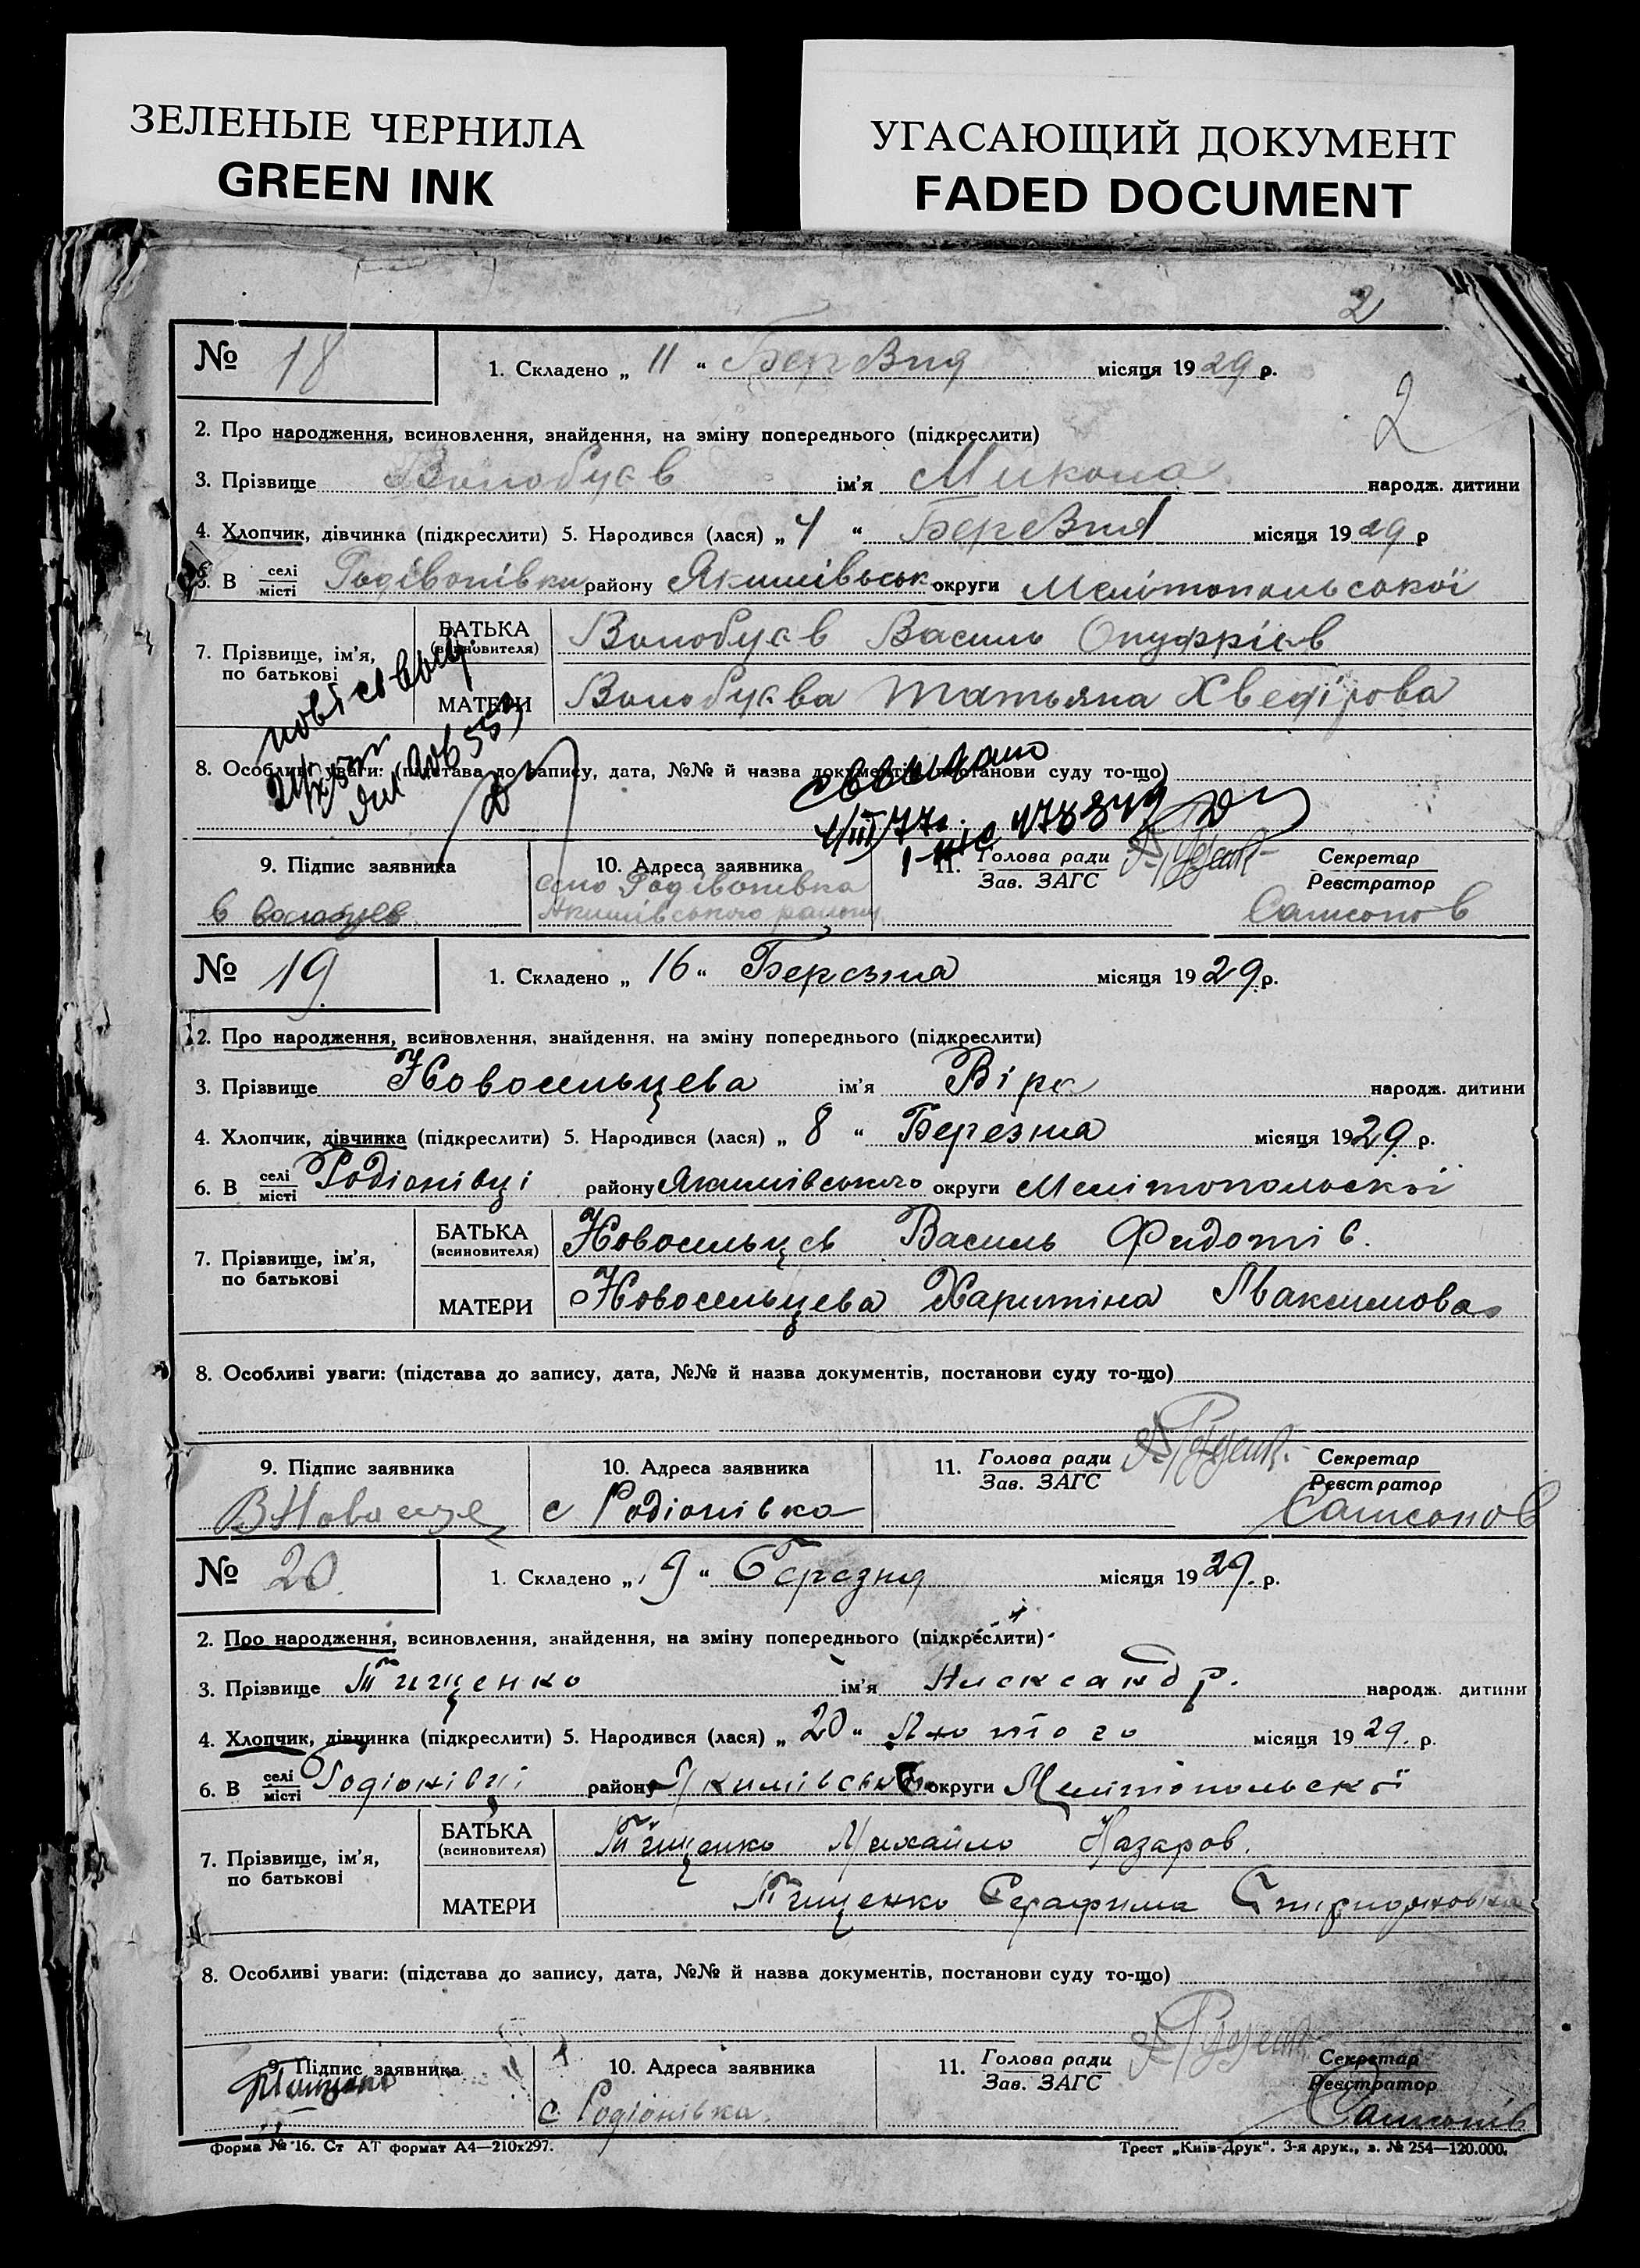 ЗЕЛЕНЫЕ ЧЕРНИЛА
GREEN INK
УГАСАЮЩИЙ ДОКУМЕНТ
FADED DOCUMENT
2
2
№ 18
1. Складено „ 11 “ Березня місяця 1929 р.
2. Про народження, всиновлення, знайдення, на зміну попереднього (підкреслити)
3. Прізвище Волобуєв ім'я Микола народж. дитини
4. Хлопчик, дівчинка (підкреслити) 5. Народився (лася) „ 4 “ Березня місяця 1929 р
6. В селі місті Родівонівки району Якимівськ округи Мелітопольської
7. Прізвище, ім'я, по батькові
БАТЬКА (всиновителя) Волобуєв Василь Онуфрієв
МАТЕРИ Волобуєва Татьяна Хведірова
8. Особливі уваги: (підстава до запису, дата, №№ й назва документів, постанови суду то-що)
9. Підпис заявника В Волобуев
10. Адреса заявника село Родівонівка Якимівського району
11. Голова ради Зав. ЗАГС
Секретар Реєстратор Самсонов
№ 19
1. Складено „ 16 “ Березня місяця 1929 р.
2. Про народження, всиновлення, знайдення, на зміну попереднього (підкреслити)
3. Прізвище Новосельцева ім'я Віра народж. дитини
4. Хлопчик, дівчинка (підкреслити) 5. Народився (лася) „ 8 “ Березня місяця 1929 р.
6. В селі місті Родіонівці району Якимівського округи Мелітопольскої
7. Прізвище, ім'я, по батькові
БАТЬКА (всиновителя) Новосельцев Василь Федотів.
МАТЕРИ Новосельцева Харитіна Максимова
8. Особливі уваги: (підстава до запису, дата, №№ й назва документів, постанови суду то-що)
9. Підпис заявника
10. Адреса заявника с Родіонівка
11. Голова ради Зав. ЗАГС
Секретар Реєстратор Самсонов
№ 20.
1. Складено „ 19 “ Березня місяця 1929. р.
2. Про народження, всиновлення, знайдення, на зміну попереднього (підкреслити)
3. Прізвище Тищенко ім'я Александр. народж. дитини
4. Хлопчик, дівчинка (підкреслити) 5. Народився (лася) „ 20 “ Лютого місяця 1929. р.
6. В селі місті Родіонівці району Якимівського округи Мелітопольскої
7. Прізвище, ім'я, по батькові
БАТЬКА (всиновителя) Тищенко Михайло Назаров.
МАТЕРИ Тищенко Серафима Спиридоновна
8. Особливі уваги: (підстава до запису, дата, №№ й назва документів, постанови суду то-що)
9. Підпис заявника Тищенко
10. Адреса заявника с Родіонівка.
11. Голова ради Зав. ЗАГС
Секретар Реєстратор Самсонів
Форма № 16. Ст АТ формат А4—210x297.
Трест „Київ-Друк“. 3-я друк., з. № 254—120.000.